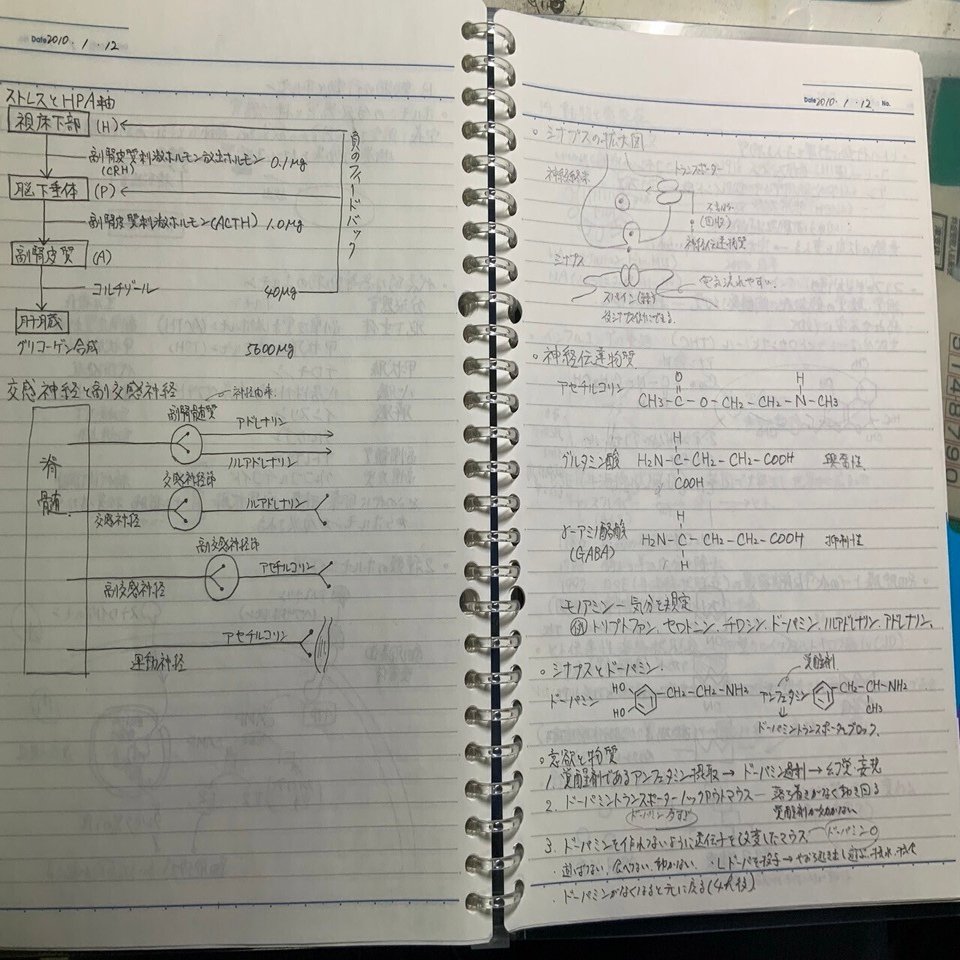 Date 2010 . 1 . 12
ストレスとHPA軸
視床下部 (H)
副腎皮質刺激ホルモン放出ホルモン 0.1μg
(CRH)
脳下垂体 (P)
副腎皮質刺激ホルモン(ACTH) 1.0μg
副腎皮質 (A)
コルチゾール 40μg
肝臓
グリコーゲン合成 5600μg
負のフィードバック
交感神経と副交感神経
神経由来
脊髄
副腎髄質 アドレナリン
ノルアドレナリン
交感神経節 ノルアドレナリン
交感神経
副交感神経節 アセチルコリン
副交感神経
アセチルコリン
運動神経
Date 2010 . 1 . 12 No.
○シナプスの拡大図
神経終末 トランスポーター
(回収)
神経伝達物質
シナプス
スパイン(棘)
○神経伝達物質
アセチルコリン
O H
CH3-C-O-CH2-CH2-N-CH3
H
グルタミン酸 H2N-C-CH2-CH2-COOH 興奮性
COOH
H
γ-アミノ酪酸 H2N-C-CH2-CH2-COOH 抑制性
(GABA) H
モノアミン-気分を規定
例 トリプトファン、セロトニン、チロシン、ドーパミン、ノルアドレナリン、アドレナリン、
○シナプスとドーパミン. 覚醒剤
ドーパミン HO HO -CH2-CH2-NH2 アンフェタミン -CH2-CH-NH2
CH3
ドーパミントランスポーターブロック.
○意欲と物質
1. 覚醒剤であるアンフェタミン摂取→ドーパミン過剰→幻覚・妄想
2. ドーパミントランスポーターノックアウトマウス― 落ち着きがなく動き回る
覚醒剤が効かない
3. ドーパミンを作れないように遺伝子を改変したマウス ドーパミン0
・遊ばない、食べない、動かない ・Lドーパを投与→
・ドーパミンがなくなると元に戻る